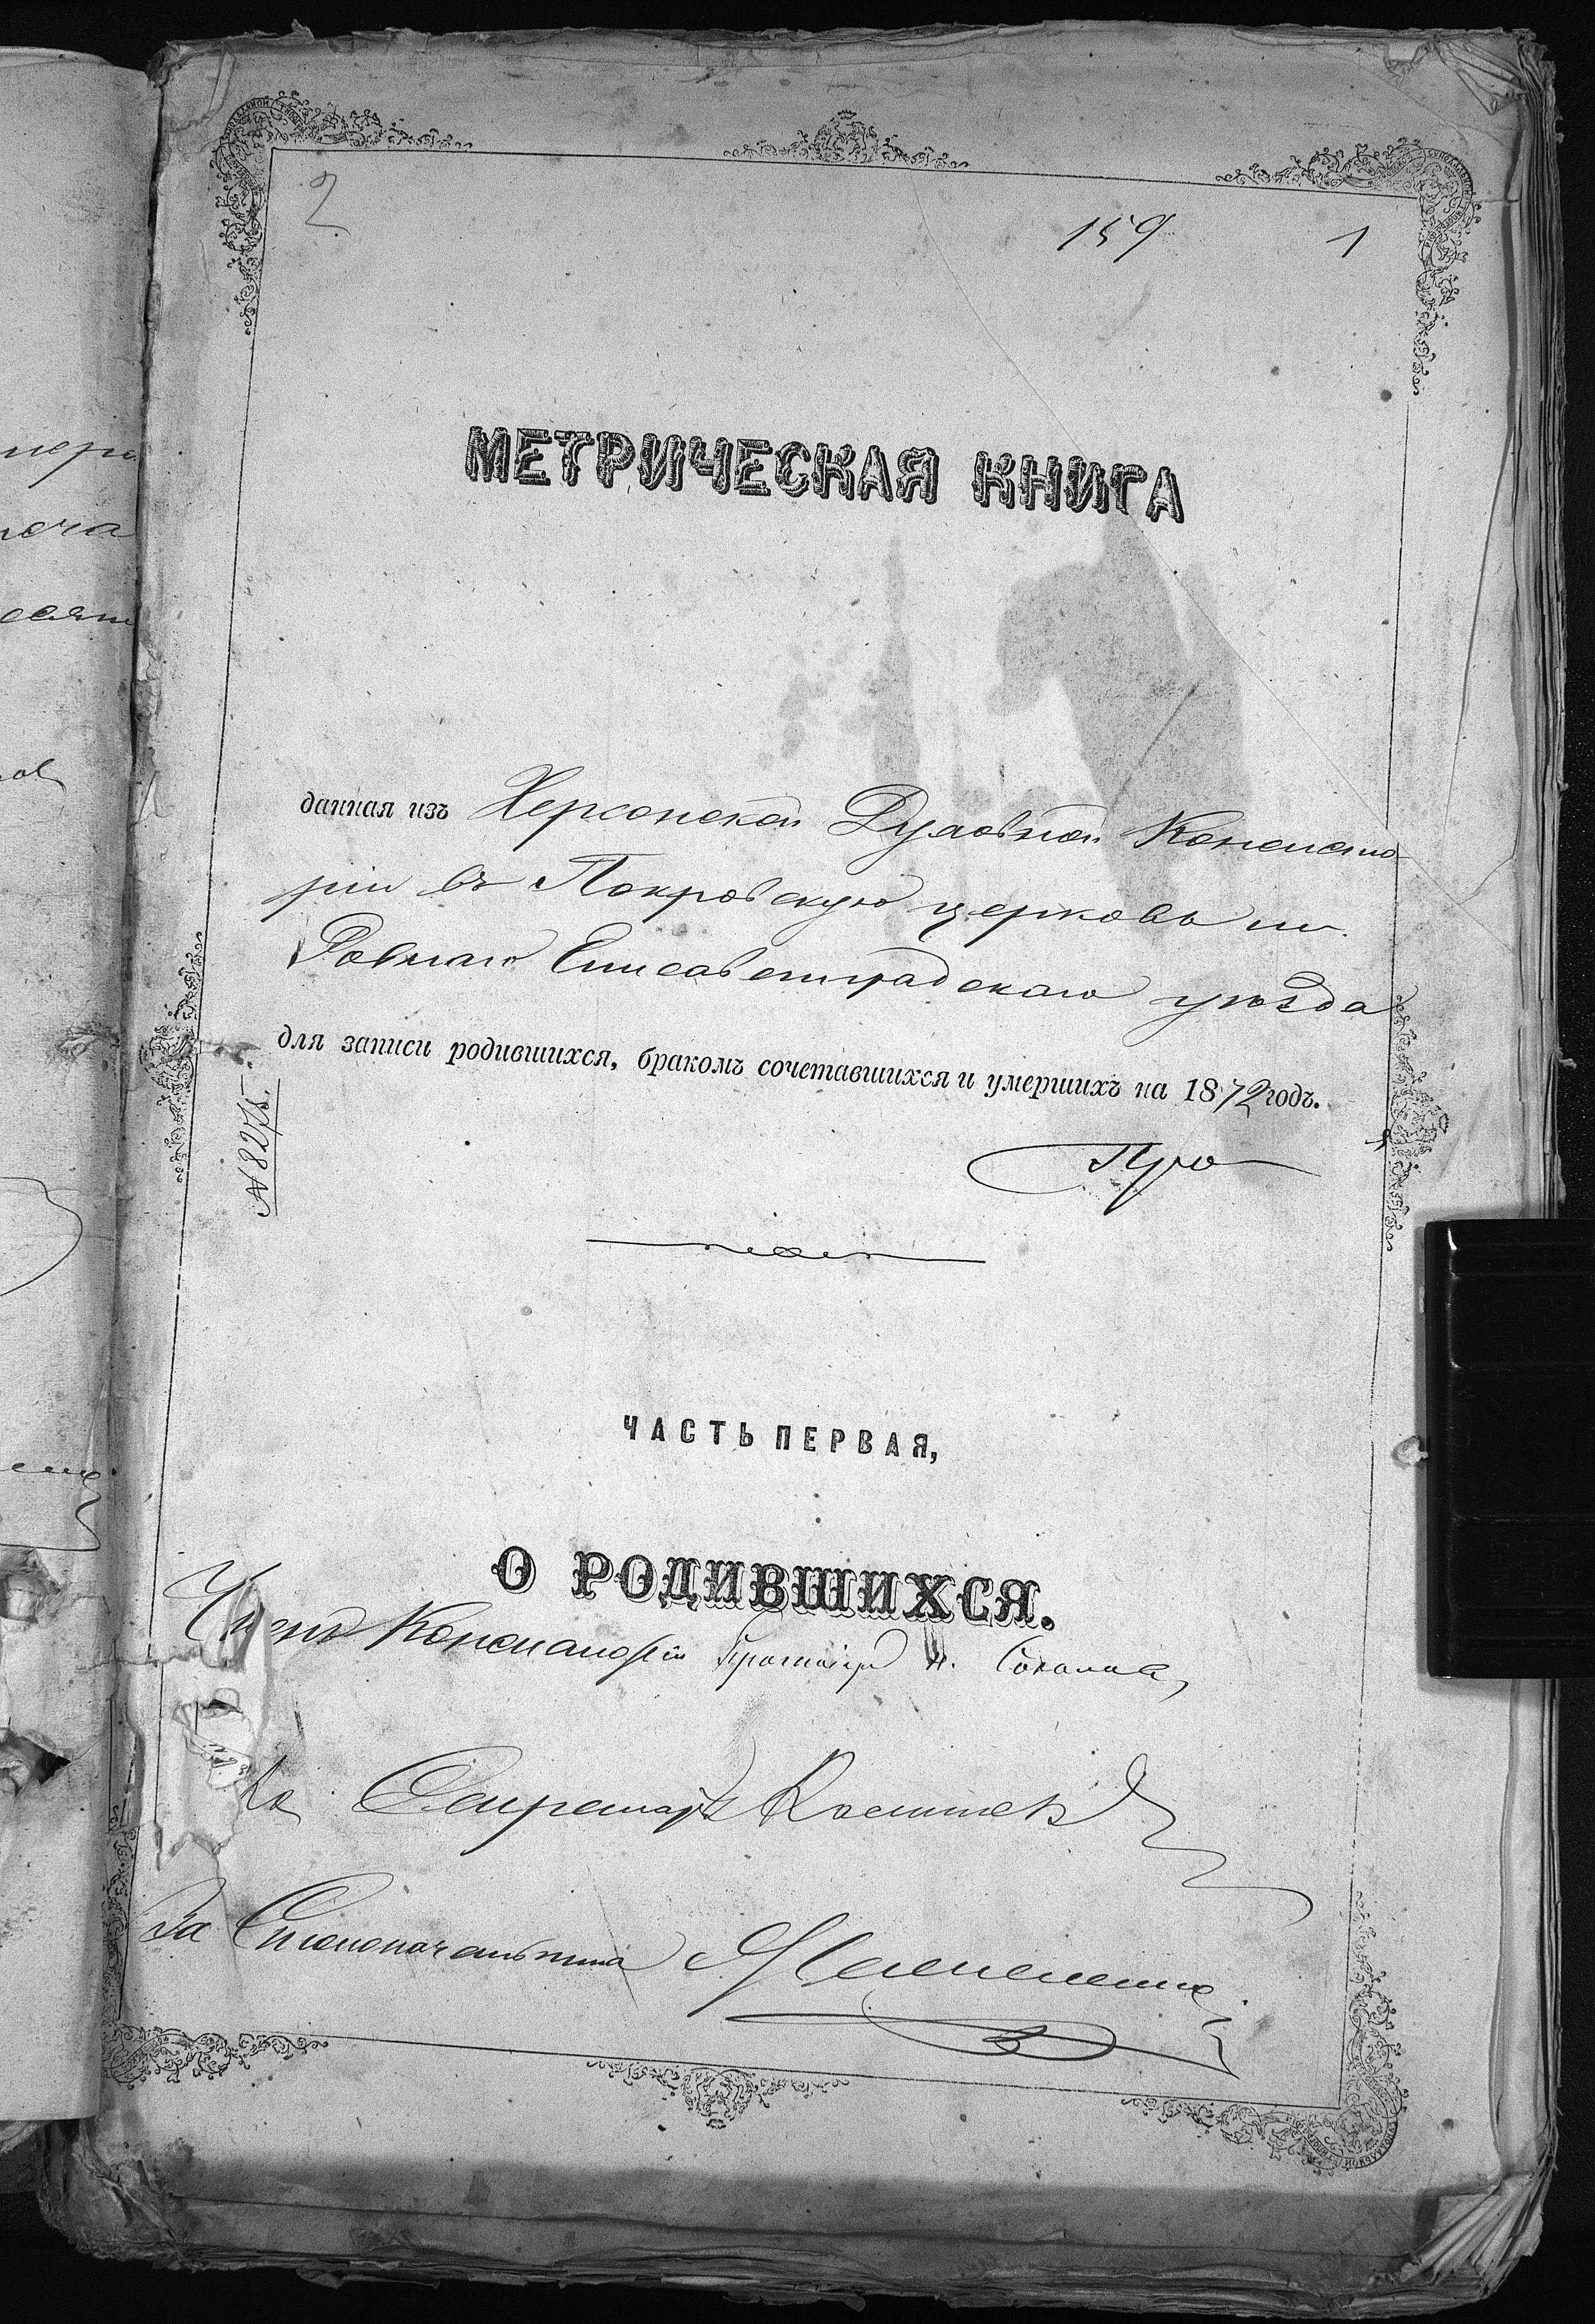 2
159 1
МЕТРИЧЕСКАЯ КНИГА
данная изъ Херсонской Духовной Консисто-
ріи въ Покровскую церковь м.
Ровнаго Елисаветградскаго уѣзда
для записи родившихся, бракомъ сочетавшихся и умершихъ на 1872 годъ.
№ 8275.
ЧАСТЬ ПЕРВАЯ,
О РОДИВШИХСЯ.
Членъ Консисторіи Протоіерей Соколовъ
Секретарь
За Столоначальника